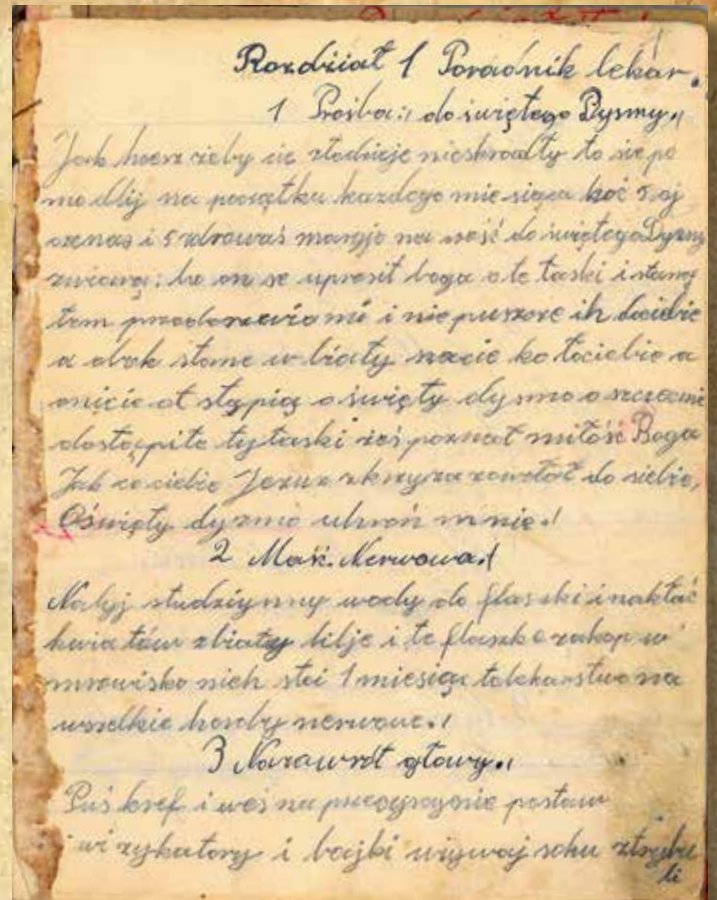 Rozdział 1 Poradnik lekar.
1 Prośba:, do świętego Dyzmy.,
Jak hcesz żeby cie złodzieje nieskradły to się po
modlij na początku każdego miesiąca hoć 5 oj
czenas i 5 zdrowaś maryjo na cześć do świętego Dyzmy
bo on se uprosił boga o te łaski i stanę
tam przed drzwiami i niepuszcze ih dociebie
a obok stane w biały szacie ko łociebie a
onicie ot stąpią o święty dyzmo o
dostąpiłe tyłaski żeś poznał miłość Boga
Jak co ciebie Jezus skrzyża zawołał do siebie,
Oświęty dyzmo uhroń mnie.!
2 Maść. Nerwowa.!
Nalyj studziynny wody do flaszki inakłać
kwiatów zbiały lilje i te flaszke zakop w
mrowisko nieh stoi 1 miesiąc tolekarstwo na
wszelkie horoby nerwowe.!
3 Nazawrót głowy.,
Puś kref i weś na postaw
wizykatory i bajki używaj soku
li